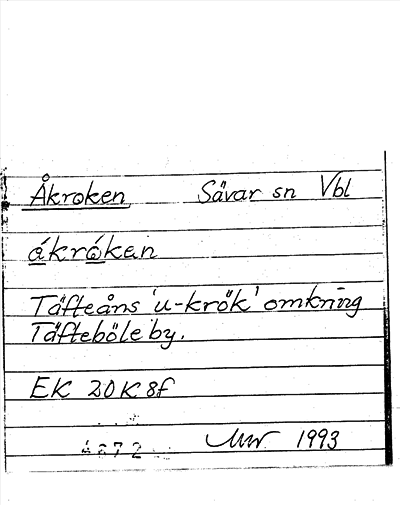 Åkroken Sävar sn Vbl
ákråken
Täfteåns 'u-krök' omkring
Täfteböle by.
EK 20K8f
1993